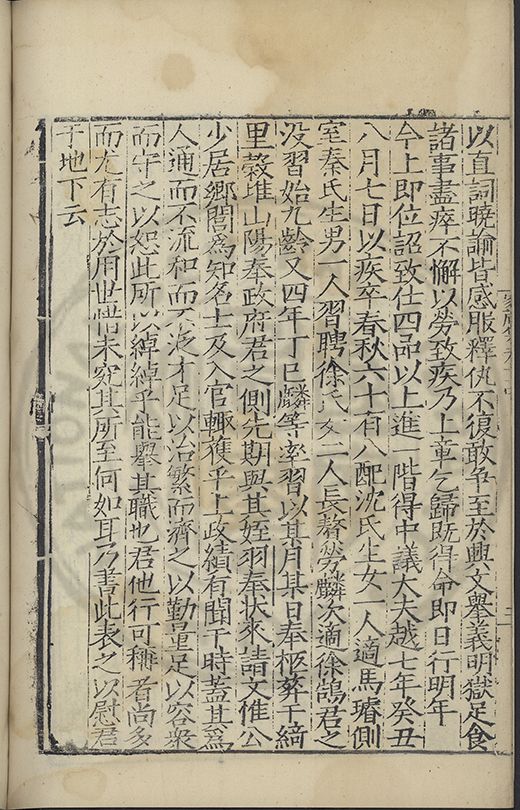 以直詞曉諭皆感服釋仇不復敢争至於興文舉義明獄足食
諸事盡瘁不懈以勞致疾乃上章乞歸既得命即日行明年
今上即位詔致仕四品以上進一階得中議大夫越七年癸丑
八月七日以疾卒春秋六十有八配沈氏生女一人適馬璿側
室秦氏生男一人習聘徐氏女二人長贅勞麟次適徐鵠君之
没習始九齡又四年丁巳麟等率習以其月某日奉柩葬于綺
里穀堆山陽奉政府君之側先期與其姪羽奉状來請文惟公
少居鄉閭爲知名士及入官輙隽乎上政績有聞于時蓋其爲
人通而不流和而不泛才足以治繁而濟之以勤量足以容衆
而守之以恕此所以綽綽乎能舉其職也君他行可稱者尚多
而尤有志於用世惜未究其所至何如耳乃書此表之以慰君
于地下云